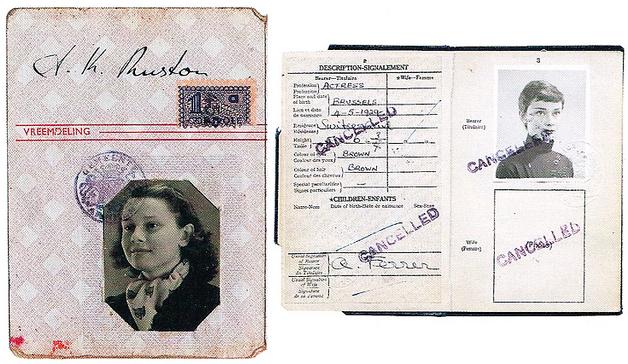 A. K. Ruston
1
VREEMDELING
2
DESCRIPTION-SIGNALEMENT
Bearer—Titulaire
★Wife—Femme
Profession
Profession
ACTRESS
Place and date
of birth
BRUSSELS
Lieu et date
de naissance
4-5-1929
Residence
Résidence
Switzerland
Height
Taille
Colour of eyes
Couleur des yeux
BROWN
Colour of hair
Couleur des cheveux
BROWN
Special peculiarities
Signes particuliers
CANCELLED
★CHILDREN-ENFANTS
Name-Nom
Date of birth-Date de naissance
Sex-Sexe
CANCELLED
Usual Signature
of Bearer
Signature
du Titulaire
A. Ferrer
Usual Signature
of Wife
Signature
de sa femme
3
Bearer
(Titulaire)
CANCELLED
Wife
(Femme)
(Photo)
CANCELLED